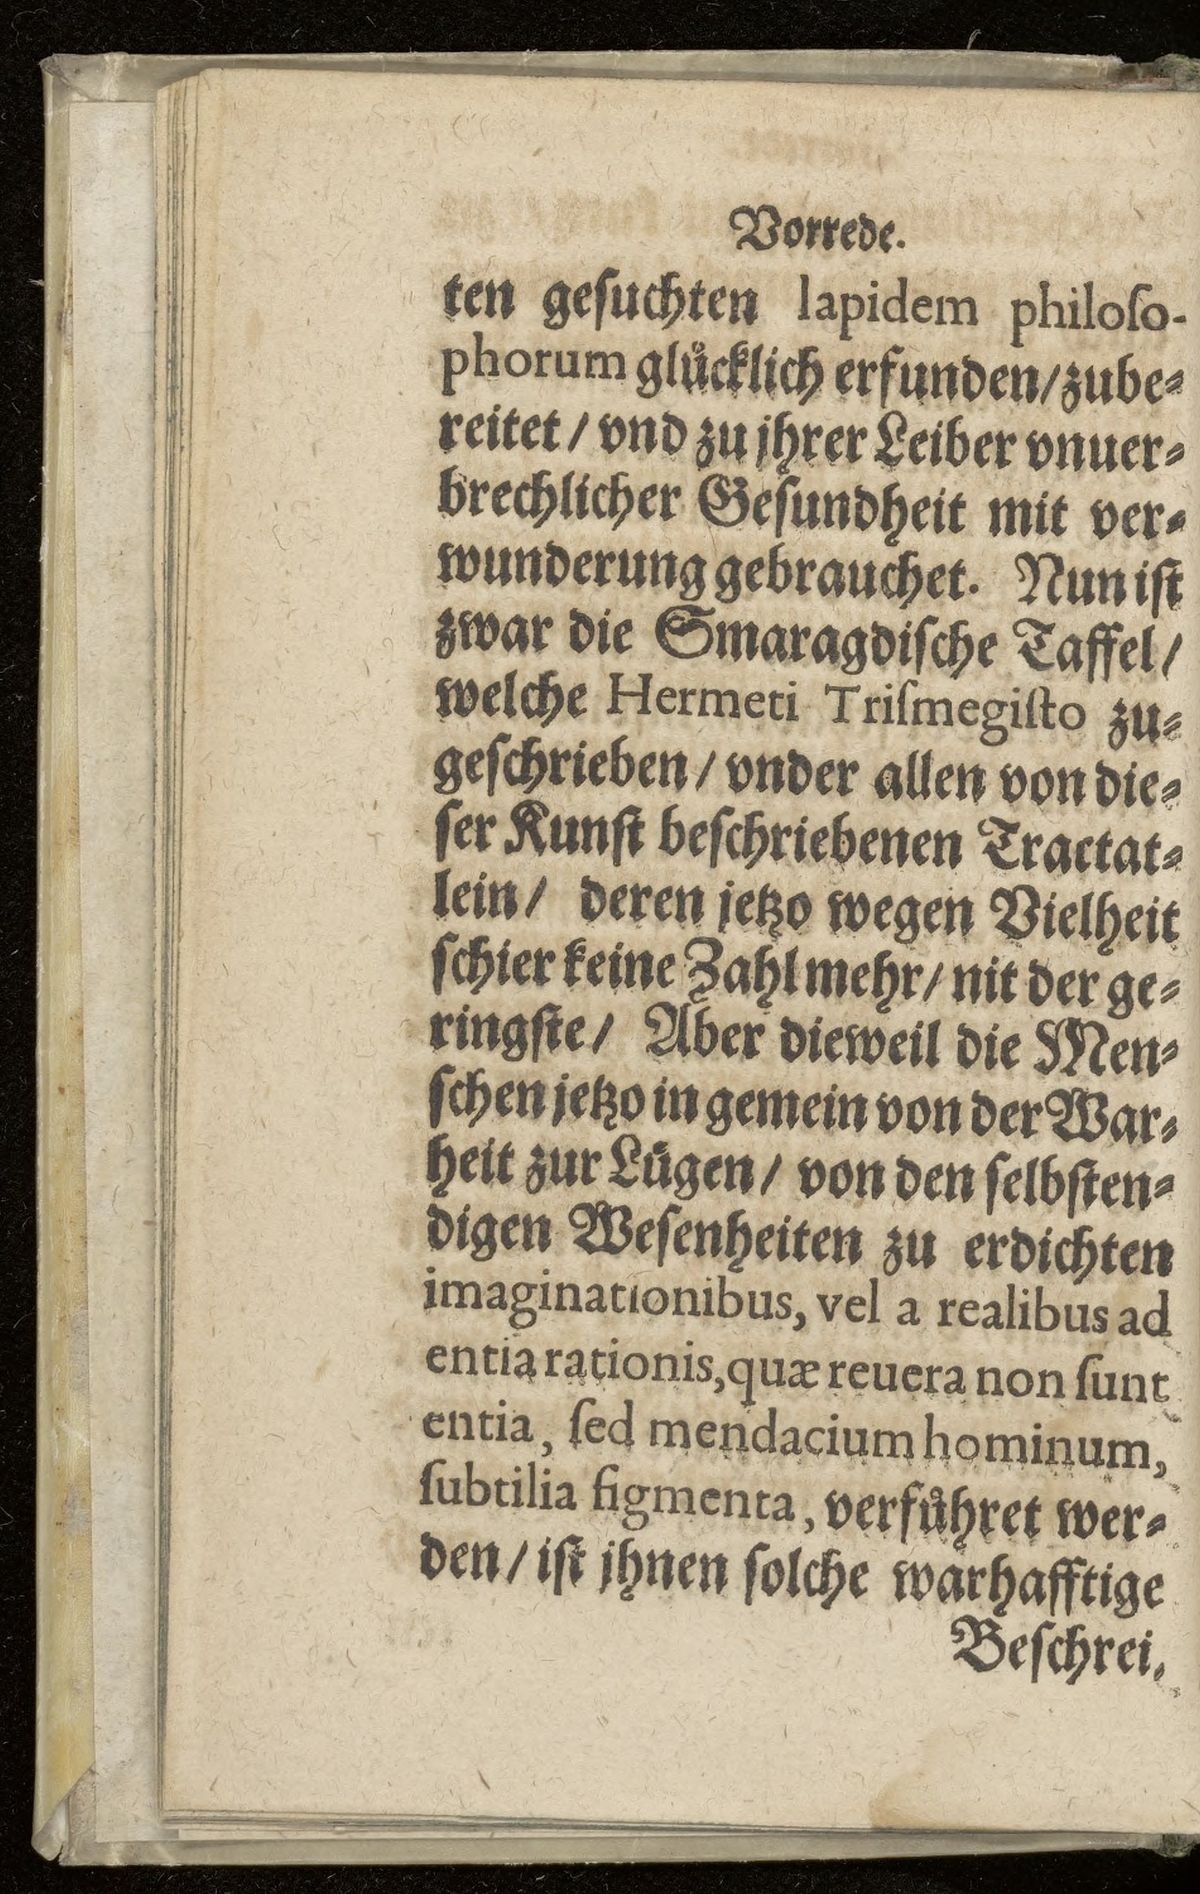 Vorrede.
ten gesuchten lapidem philoſo-
phorum gluͤcklich erfunden/zube⸗
reitet / vnd zu jhrer Leiber vnuer⸗
brechlicher Geſundheit mit ver⸗
wunderung gebrauchet. Nun iſt
zwar die Smaragdiſche Taffel/
welche Hermeti Triſmegiſto zu⸗
geſchrieben / vnder allen von die⸗
ſer Kunſt beſchriebenen Tractat⸗
lein / deren jetzo wegen Vielheit
ſchier keine Zahl mehr / nit der ge⸗
ringſte / Aber dieweil die Men⸗
ſchen jetzo in gemein von der War⸗
heit zur Luͤgen / von den ſelbſten⸗
digen Weſenheiten zu erdichten
imaginationibus, vel a realibus ad
entia rationis, quæ reuera non ſunt
entia, ſed mendacium hominum,
ſubtilia figmenta, verfuͤhret wer⸗
den / iſt jhnen ſolche warhafftige
Beſchrei⸗